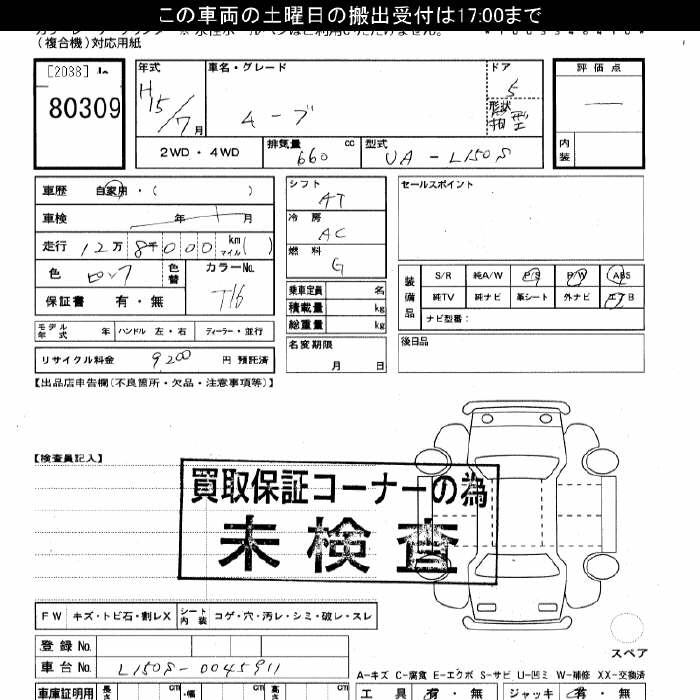 この車両の土曜日の搬出受付は17:00まで
(複合機)対応用紙
[2038]
80309
年式 車名・グレード ドア 評価点
H15/7月 ムーブ 5 形状 箱型
2WD・4WD 排気量 660 cc 型式 UA-L150S 内装
車歴 自家用・( )
車検 年 月
走行 12万8千000 km マイル ( )
色 ピンク 色替 カラーNo. T16
保証書 有・無
モデル年式 年 ハンドル 左・右 ディーラー・並行
リサイクル料金 9200 円 預託済
シフト AT
冷房 AC
燃料 G
乗車定員 名
積載量 kg
総重量 kg
名変期限 月 日
セールスポイント
装備品 S/R 純A/W P/S P/W ABS
純TV 純ナビ 革シート 外ナビ エアB
ナビ型番:
後日品
【出品店申告欄(不良箇所・欠品・注意事項等)】
【検査員記入】
買取保証コーナーの為
未検査
FW キズ・トビ石・割レX シート内装 コゲ・穴・汚レ・シミ・破レ・スレ
スペア
登録No.
車台No. L150S-0045911
A-キズ C-腐食 E-エクボ S-サビ U-凹ミ W-補修 XX-交換済
車庫証明用 長さ cm ・幅 cm 高さ cm 工具 有・無 ジャッキ 有・無